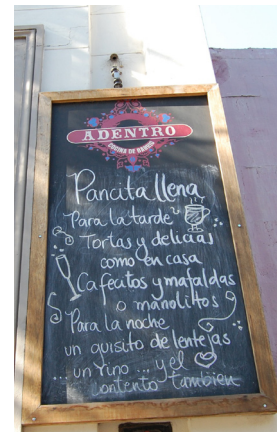 ADENTRO
COCINA DE BARRIO
Pancita llena
Para la tarde
Tortas y delicias
como en casa
Cafecitos y mafaldas
o manolitos
Para la noche
un guisito de lentejas
... un vino ... y el
contento también